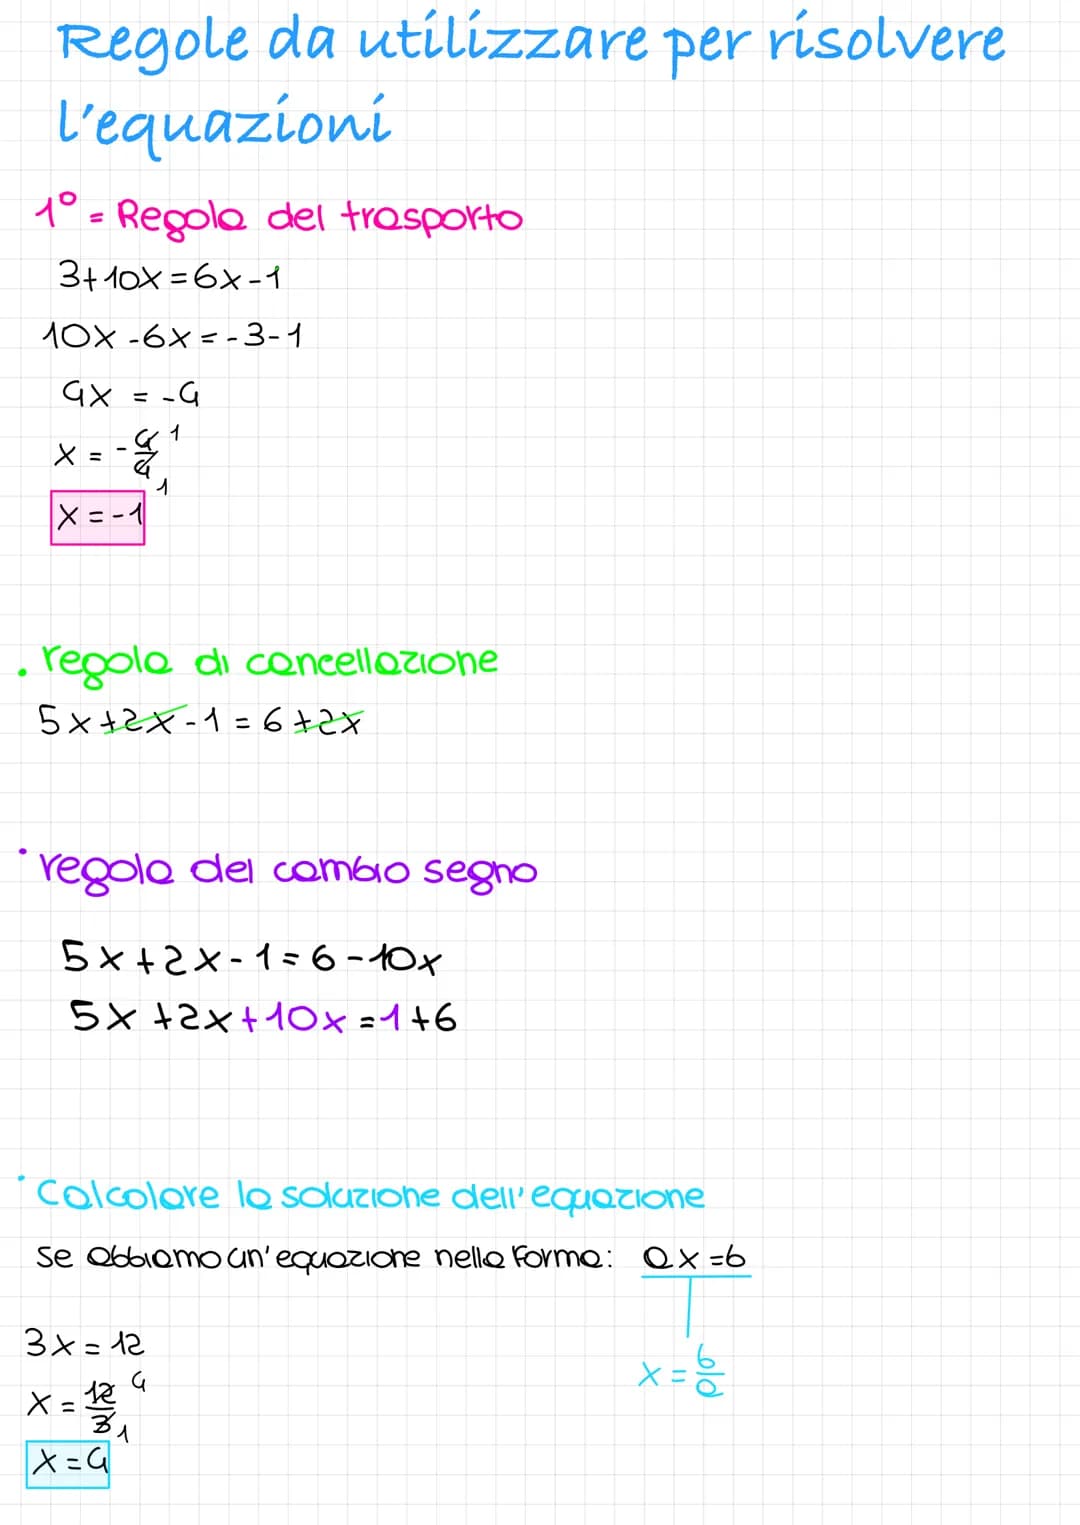 Regole da utilizzare per risolvere
l'equazioni
1° = Regola del trasporto
3+10x=6x-1
10x-6x=-3-1
4x = -4
x = -4/4 1 1
x=-1
. regola di cancellazione
5x+2x-1=6+2x
· regola del cambio segno
5x+2x-1=6-10x
5x+2x+10x=1+6
· Calcolare la soluzione dell'equazione
se abbiamo un'equazione nella forma: ax=b
x=b/a
3x=12
x=12/3 4 1
x=4